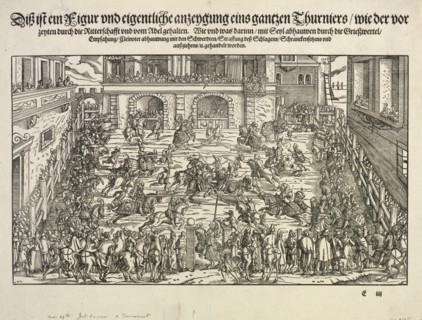 Diß ist ein Figur vnd eigentliche anzeygung eins gantzen Thurniers / wie der vor
zeyten durch die Ritterschafft vnd vom Adel gehalten. Wie vnd was darinn / mit Seyl abhauwen durch die Grießwertel /
Empfahung / Kleinoter abhauwung mit den Schwerdten / Straffung deß Schlagens / Schranckensetzens vnd
auffziehens u. gehandelt worden.
E iiij
Jost Amman A Tournament